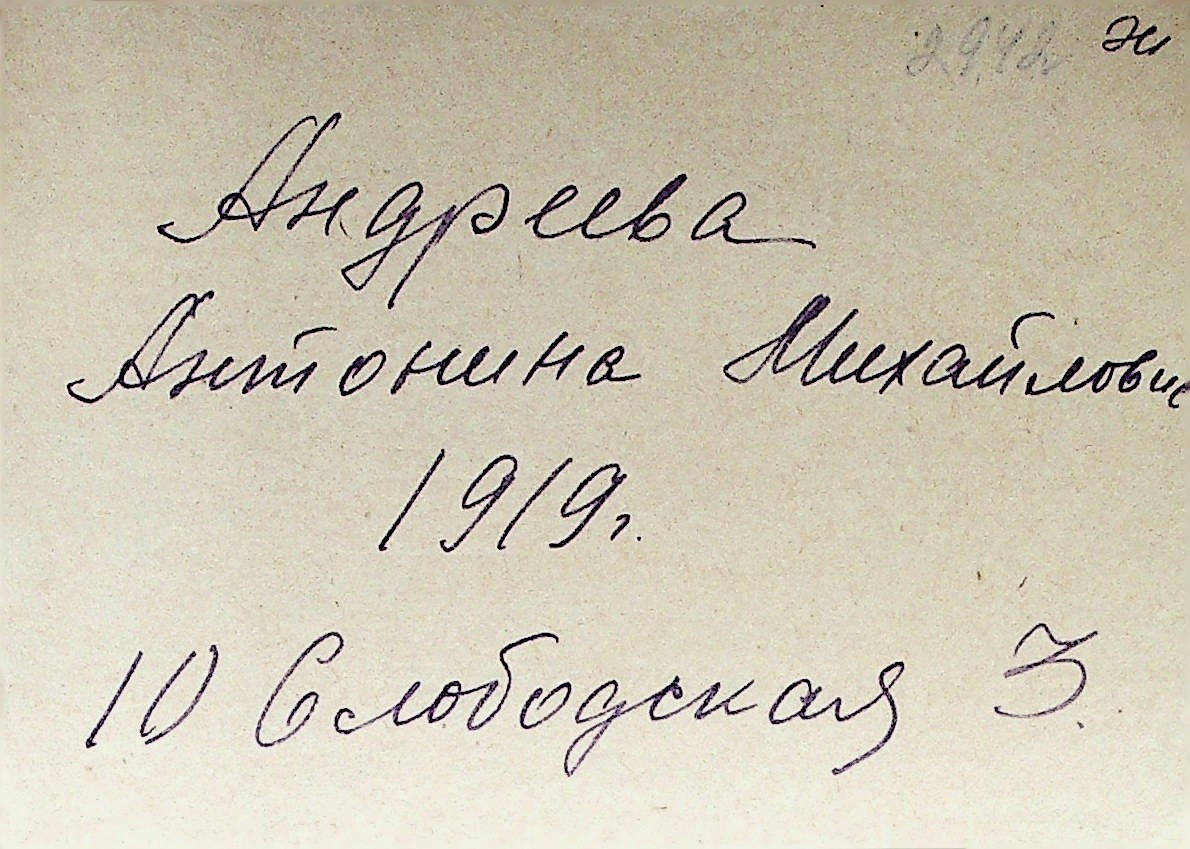 2942 ж
Андреева
Антонина Михайлович
1919г.
10 Слободская 3.